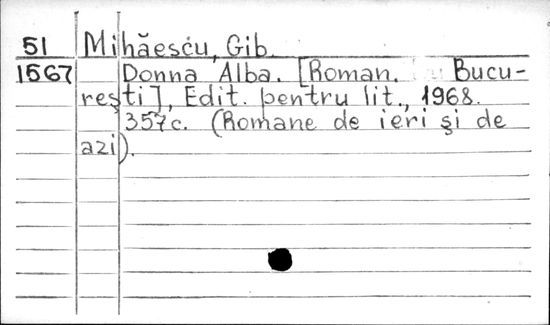 51 Mihăescu, Gib.
1567 Donna Alba. [Roman. Bucu-
reşti], Edit. pentru lit., 1968.
357c. (Romane de ieri şi de
azi).